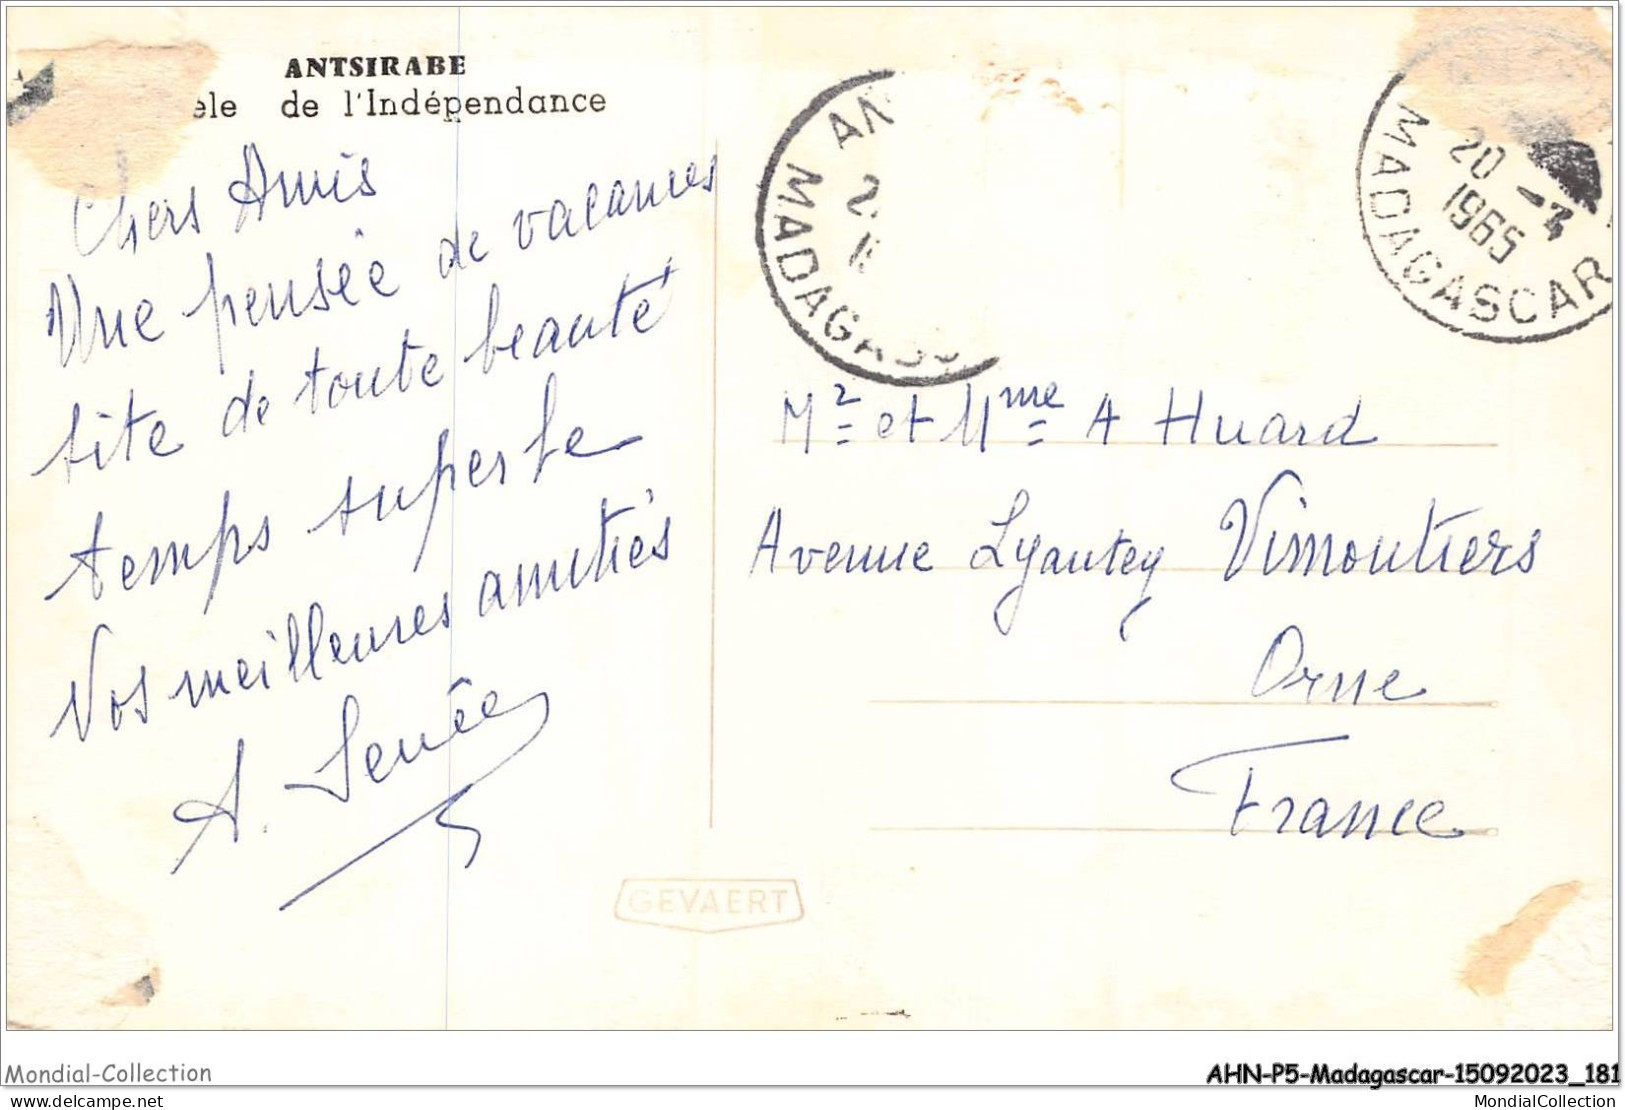 ANTSIRABE
èle de l'Indépendance
Chers Amis
Une pensée de vacances
site de toute beauté
temps superbe
Nos meilleures amitiés
A.
AN
MADAGASC
20 -4
1965
MADAGASCAR
Mr et Mme A Huard
Avenue Lyautey Vimoutiers
Orne
France
GEVAERT
Mondial-Collection
AHN-P5-Madagascar-15092023_181
delcampe.net
MondialCollection